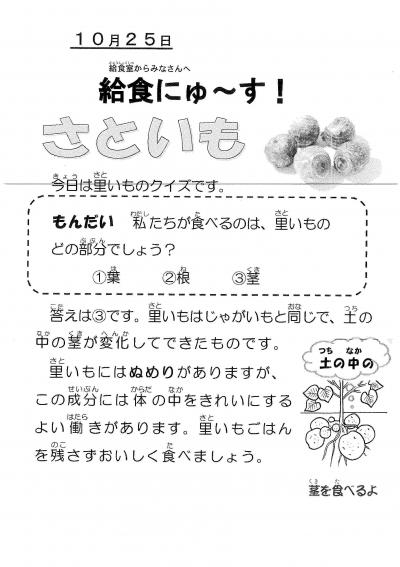 １０月２５日
給食室からみなさんへ
給食にゅ～す！
さといも
今日は里いものクイズです。
もんだい　私たちが食べるのは、里いもの
どの部分でしょう？
①葉　②根　③茎
答えは③です。里いもはじゃがいもと同じで、土の
中の茎が変化してできたものです。
里いもにはぬめりがありますが、
この成分には体の中をきれいにする
よい働きがあります。里いもごはん
を残さずおいしく食べましょう。
土の中の
茎を食べるよ